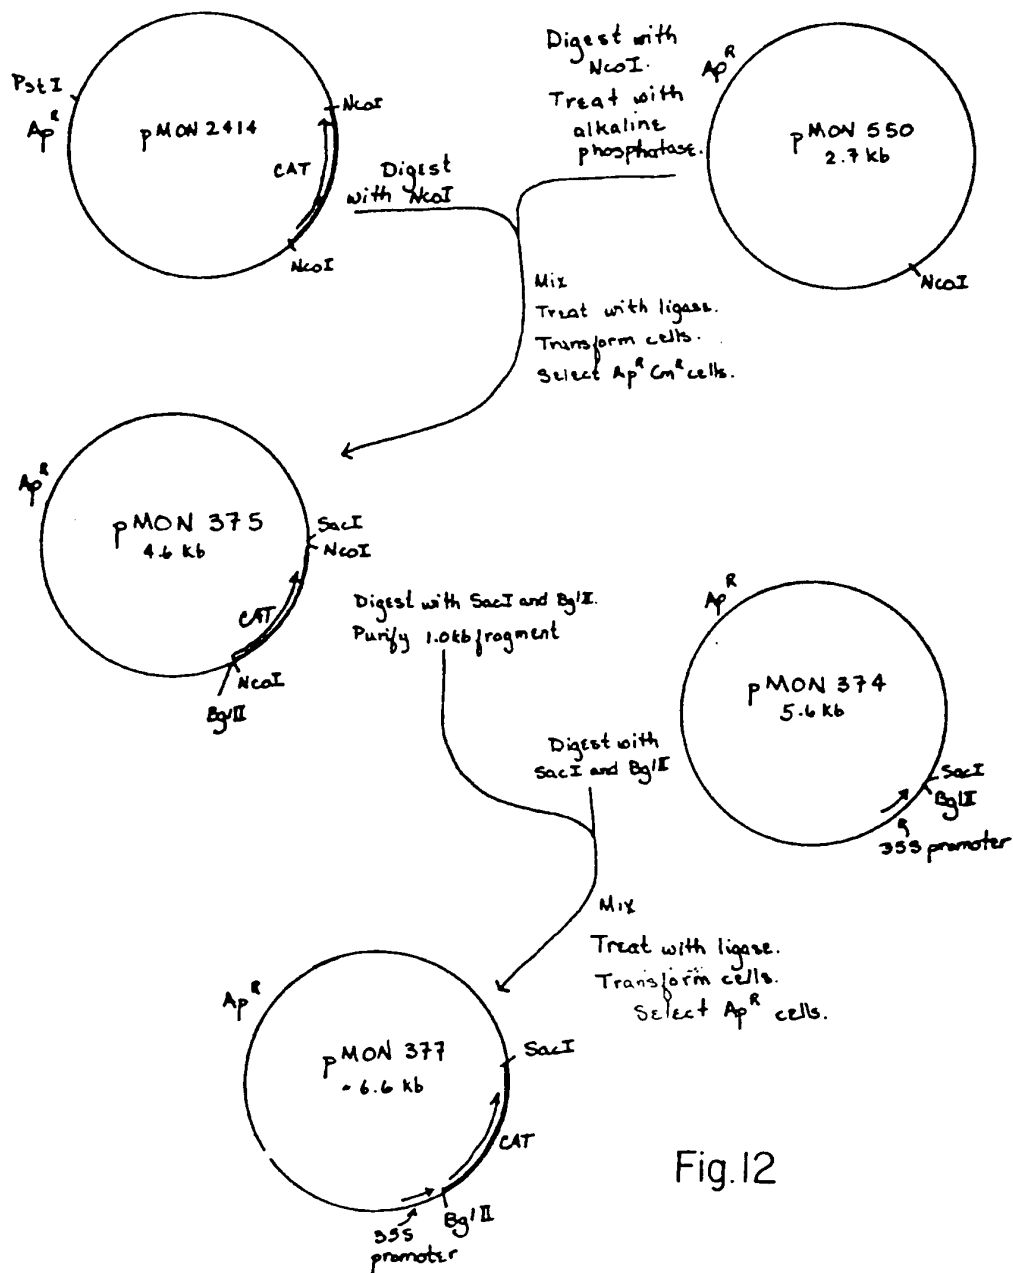 PstI
Ap^R
pMON 2414
NcoI
CAT
NcoI
Digest
with NcoI
Digest with
NcoI.
Treat with
alkaline
phosphatase.
Ap^R
pMON 550
2.7 kb
NcoI
Mix
Treat with ligase.
Transform cells.
Select Ap^R Cm^R cells.
Ap^R
pMON 375
4.6 kb
SacI
NcoI
CAT
NcoI
BglII
Digest with SacI and BglII.
Purify 1.0kb fragment
Digest with
SacI and BglII
Ap^R
pMON 374
5.6 kb
SacI
BglII
35S promoter
Mix
Treat with ligase.
Transform cells.
Select Ap^R cells.
Ap^R
pMON 377
~6.6 kb
SacI
CAT
BglII
35S
promoter
Fig.12